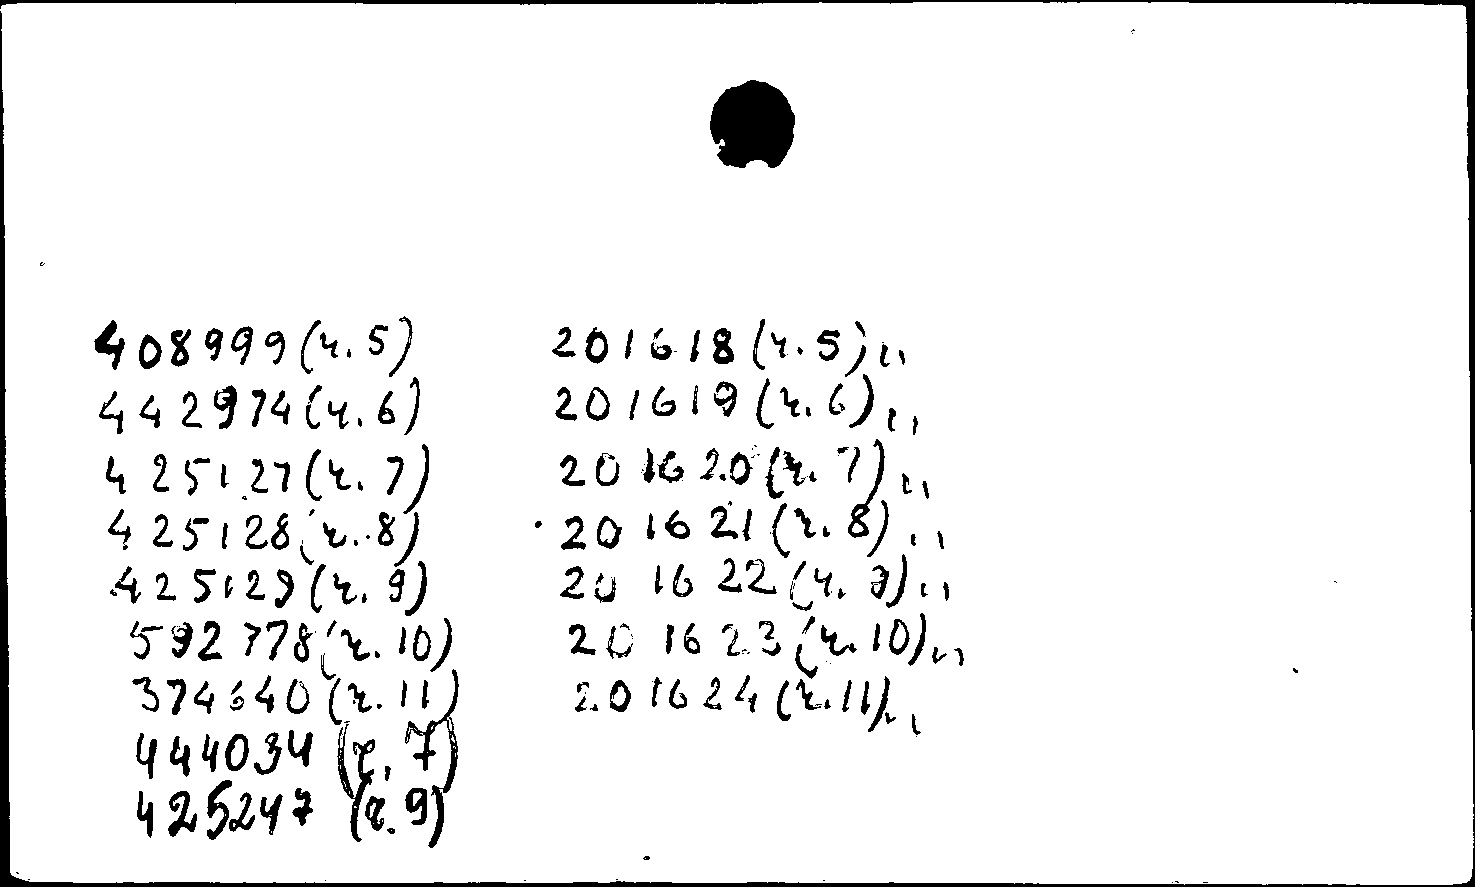 408999 (ч. 5) 201618 (ч. 5) „
442974 (ч. 6) 201619 (ч. 6) „
425127 (ч. 7) 201620 (ч. 7) „
425128 (ч. 8) 201621 (ч. 8) „
425129 (ч. 9) 201622 (ч. 9) „
592778 (ч. 10) 201623 (ч. 10) „
374640 (ч. 11) 201624 (ч. 11) „
444034 (ч. 7)
425247 (ч. 9)